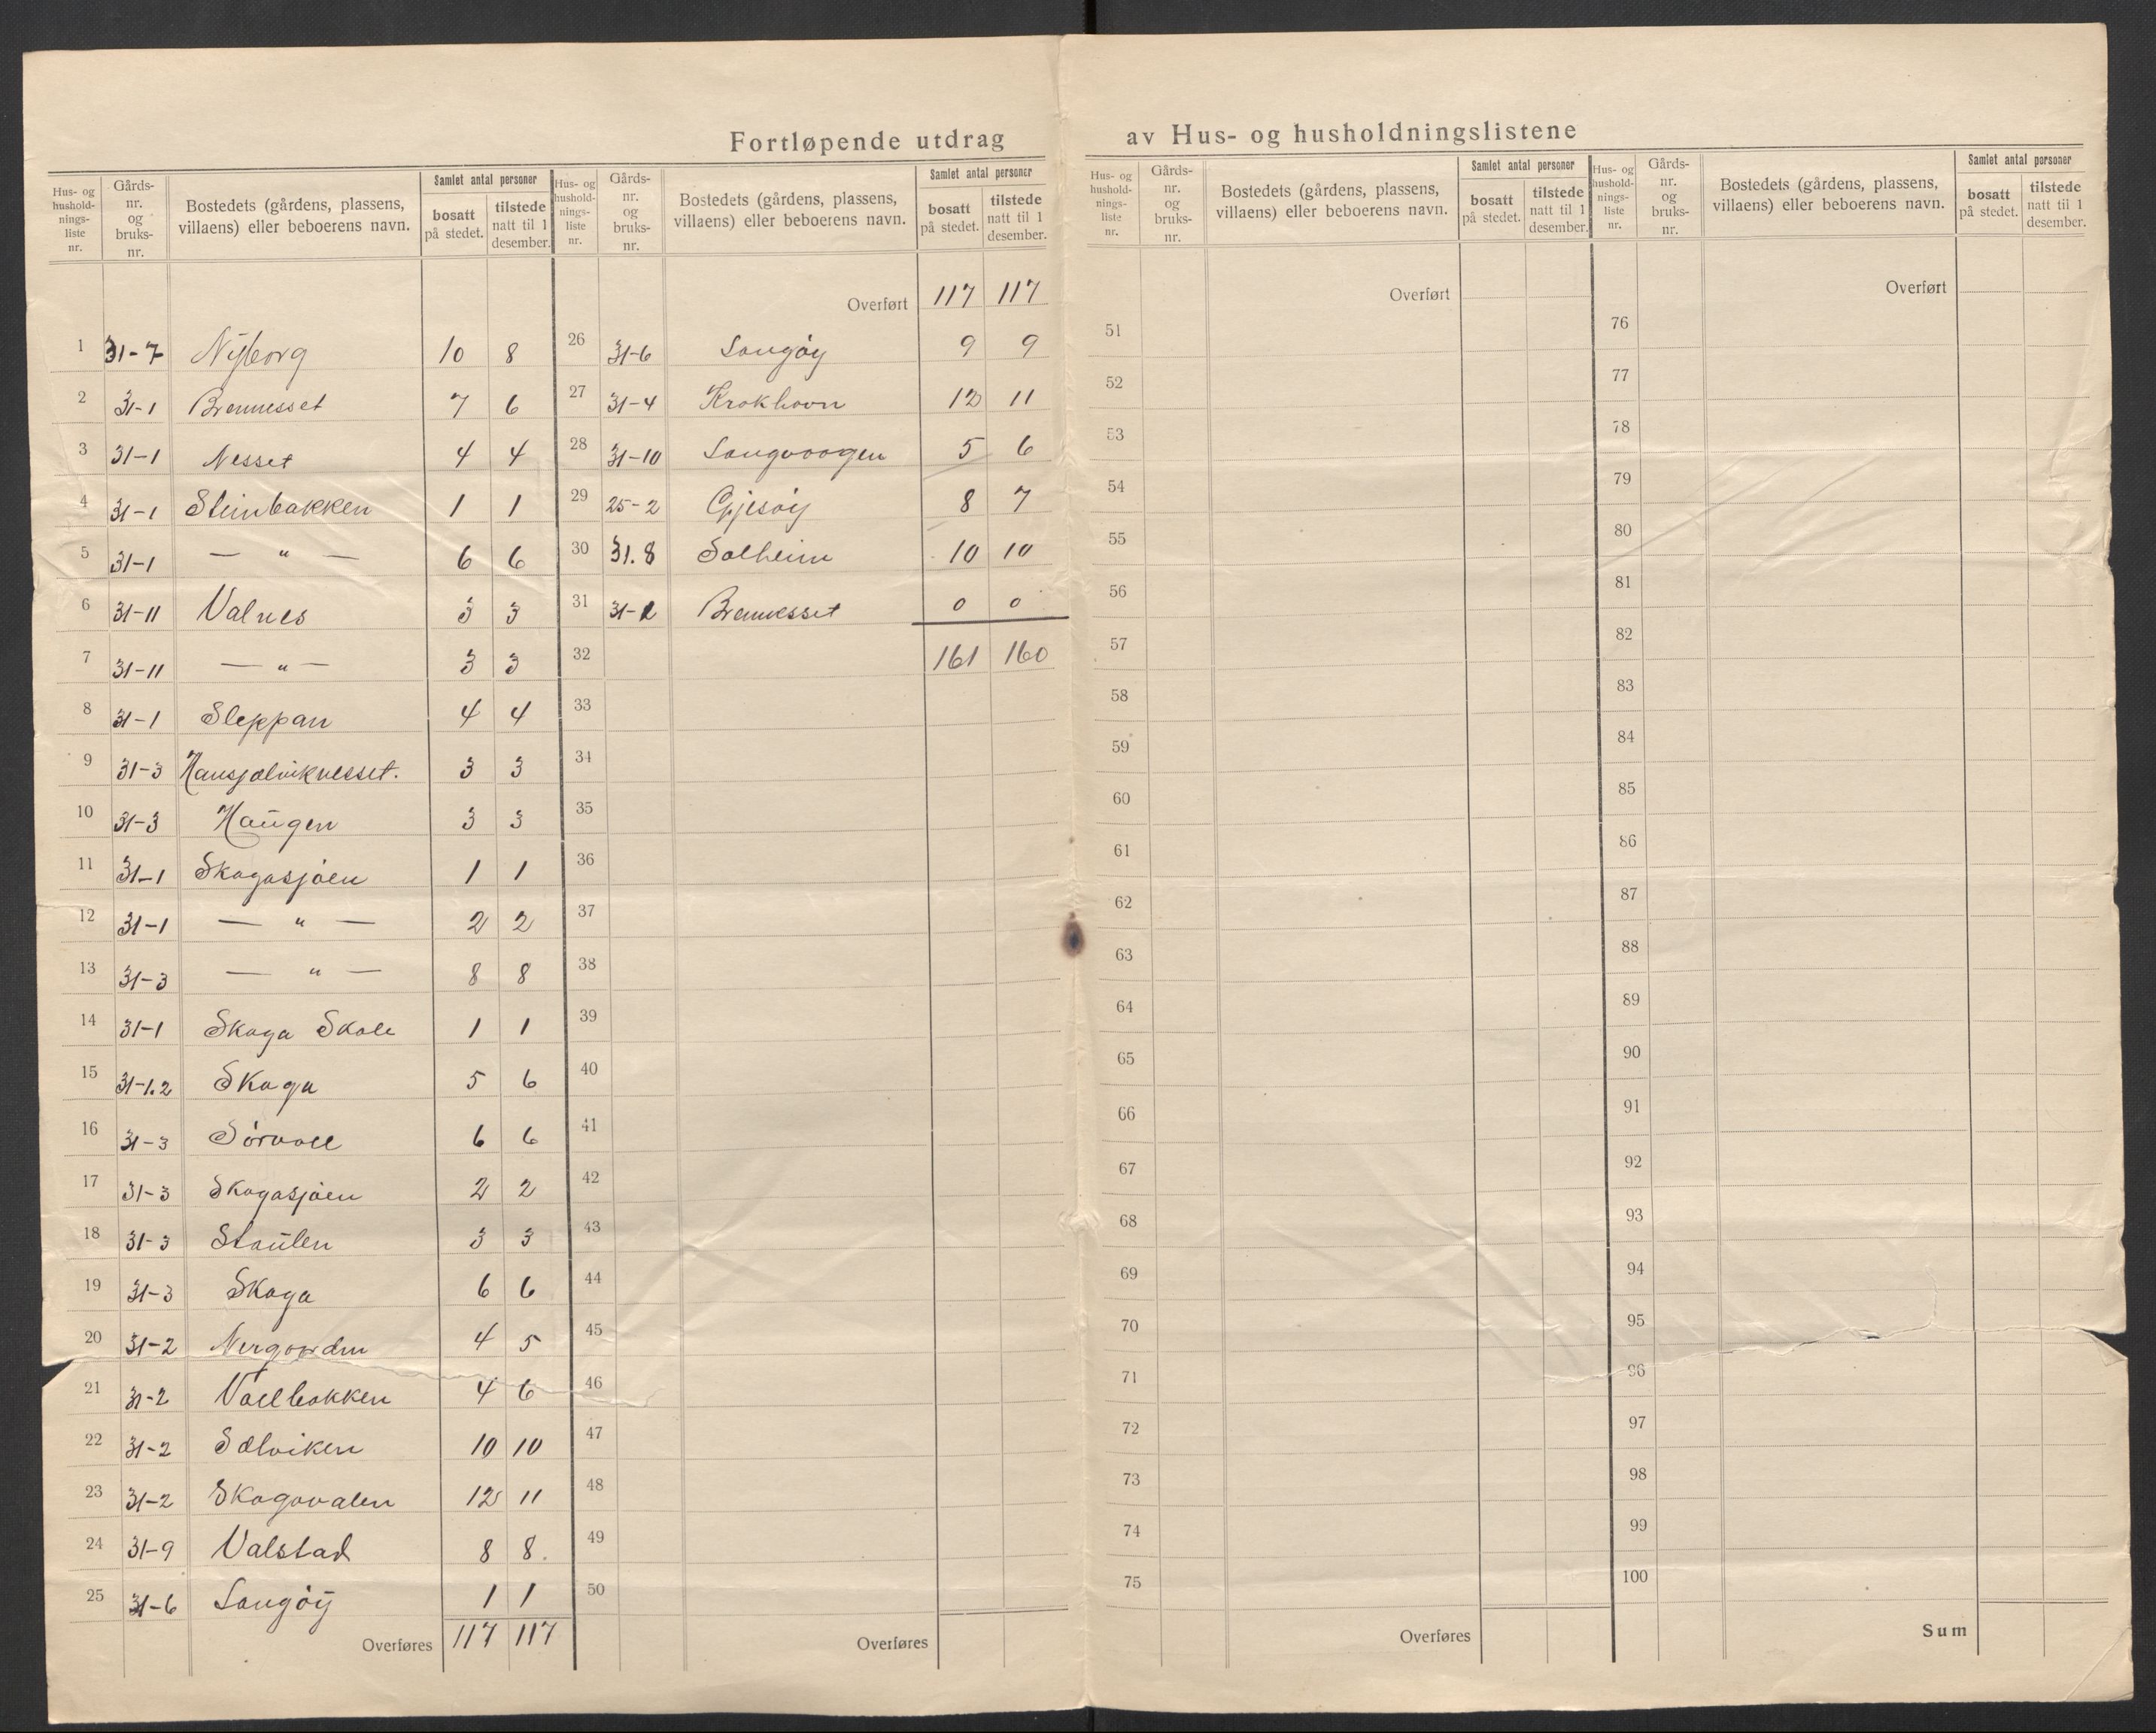 Fortløpende utdrag av Hus- og husholdningslistene
Hus- og hushold-nings-liste nr. Gårds-nr. og bruks-nr. Bostedets (gårdens, plassens, villaens) eller beboerens navn. Samlet antal personer bosatt på stedet. tilstede natt til 1 desember.
1 31-7 Nyborg 10 8
2 31-1 Brennesset 7 6
3 31-1 Nesset 4 4
4 31-1 Steinbakken 1 1
5 31-1 — " — 6 6
6 31-11 Valnes 3 3
7 31-11 — " — 3 3
8 31-1 Sleppan 4 4
9 31-3 Hansjølviknesset. 3 3
10 31-3 Haugen 3 3
11 31-1 Skogasjøen 1 1
12 31-1 — " — 2 2
13 31-3 — " — 8 8
14 31-1 Skoga Skole 1 1
15 31-1.2 Skoga 5 6
16 31-3 Sørvoll 6 6
17 31-3 Skogasjøen 2 2
18 31-3 Staulen 3 3
19 31-3 Skoga 6 6
20 31-2 Nergorden 4 5
21 31-2 Vollbakken 4 6
22 31-2 Sølviken 10 10
23 31-2 Skogovalen 12 11
24 31-9 Valstad 8 8.
25 31-6 Langøy 1 1
Overføres 117 117
Hus- og hushold-nings-liste nr. Gårds-nr. og bruks-nr. Bostedets (gårdens, plassens, villaens) eller beboerens navn. Samlet antal personer bosatt på stedet. tilstede natt til 1 desember.
Overført 117 117
26 31-6 Langøy 9 9
27 31-4 Krokhovn 12 11
28 31-10 Langvaagen 5 6
29 25-2 Gjesøy 8 7
30 31.8 Solheim 10 10
31 31-1 Brennesset 0 0
32 161 160
33
34
35
36
37
38
39
40
41
42
43
44
45
46
47
48
49
50
Overføres
Hus- og hushold-nings-liste nr. Gårds-nr. og bruks-nr. Bostedets (gårdens, plassens, villaens) eller beboerens navn. Samlet antal personer bosatt på stedet. tilstede natt til 1 desember.
Overført
51
52
53
54
55
56
57
58
59
60
61
62
63
64
65
66
67
68
69
70
71
72
73
74
75
Overføres
Hus- og hushold-nings-liste nr. Gårds-nr. og bruks-nr. Bostedets (gårdens, plassens, villaens) eller beboerens navn. Samlet antal personer bosatt på stedet. tilstede natt til 1 desember.
Overført
76
77
78
79
80
81
82
83
84
85
86
87
88
89
90
91
92
93
94
95
96
97
98
99
100
Sum